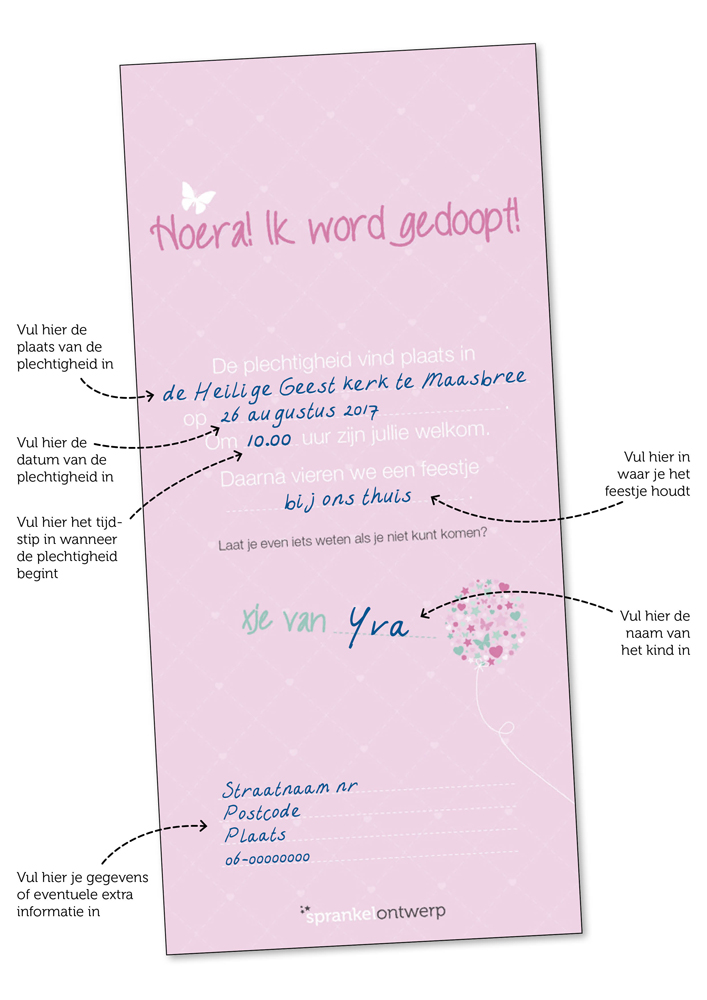 Hoera! Ik word gedoopt!
Vul hier de
plaats van de
plechtigheid in
De plechtigheid vind plaats in
de Heilige Geest kerk te Maasbree
op 26 augustus 2017.
Om 10.00 uur zijn jullie welkom.
Vul hier de
datum van de
plechtigheid in
Daarna vieren we een feestje
bij ons thuis.
Vul hier in
waar je het
feestje houdt
Vul hier het tijd-
stip in wanneer
de plechtigheid
begint
Laat je even iets weten als je niet kunt komen?
xje van Yva
Vul hier de
naam van
het kind in
Straatnaam nr
Postcode
Plaats
06-00000000
Vul hier je gegevens
of eventuele extra
informatie in
sprankelontwerp